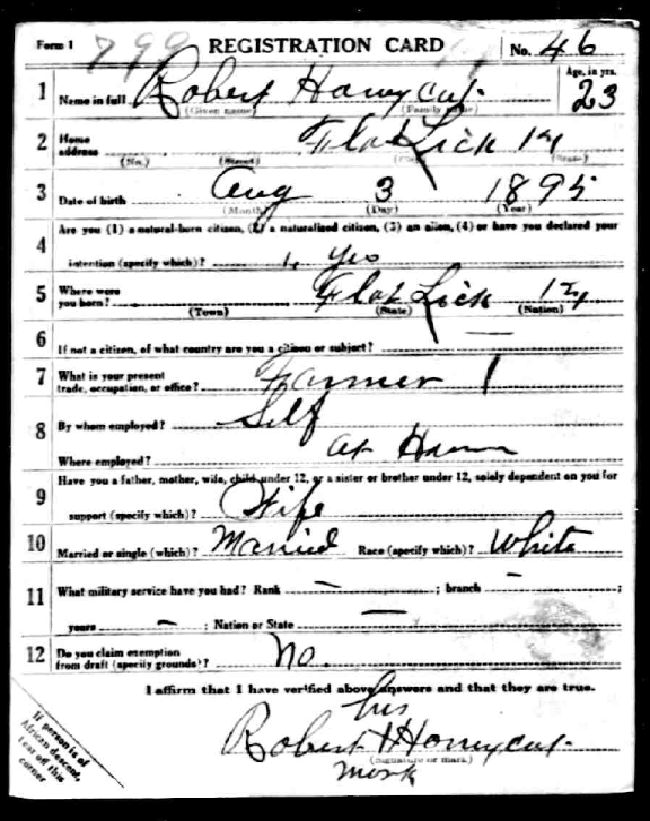 Form 1 799 REGISTRATION CARD No. 46
1 Name in full Robert Honeycut Age, in yrs. 23
(Given name) (Family name)
2 Home address Flat Lick Ky
(No.) (Street) (City) (State)
3 Date of birth Aug 3 1895
(Month) (Day) (Year)
4 Are you (1) a natural-born citizen, (2) a naturalized citizen, (3) an alien, (4) or have you declared your
intention (specify which)? 1, Yes
5 Where were you born? Flat Lick Ky
(Town) (State) (Nation)
6 If not a citizen, of what country are you a citizen or subject? —
7 What is your present trade, occupation, or office? Farmer 1
8 By whom employed? Self
Where employed? At Home
9 Have you a father, mother, wife, child under 12, or a sister or brother under 12, solely dependent on you for
support (specify which)? Wife
10 Married or single (which)? Married Race (specify which)? White
11 What military service have you had? Rank — ; branch — ;
years — ; Nation or State —
12 Do you claim exemption from draft (specify grounds)? No.
I affirm that I have verified above answers and that they are true.
his
Robert X Honeycut
(Signature or mark)
mark
If person is of
African descent,
tear off this
corner